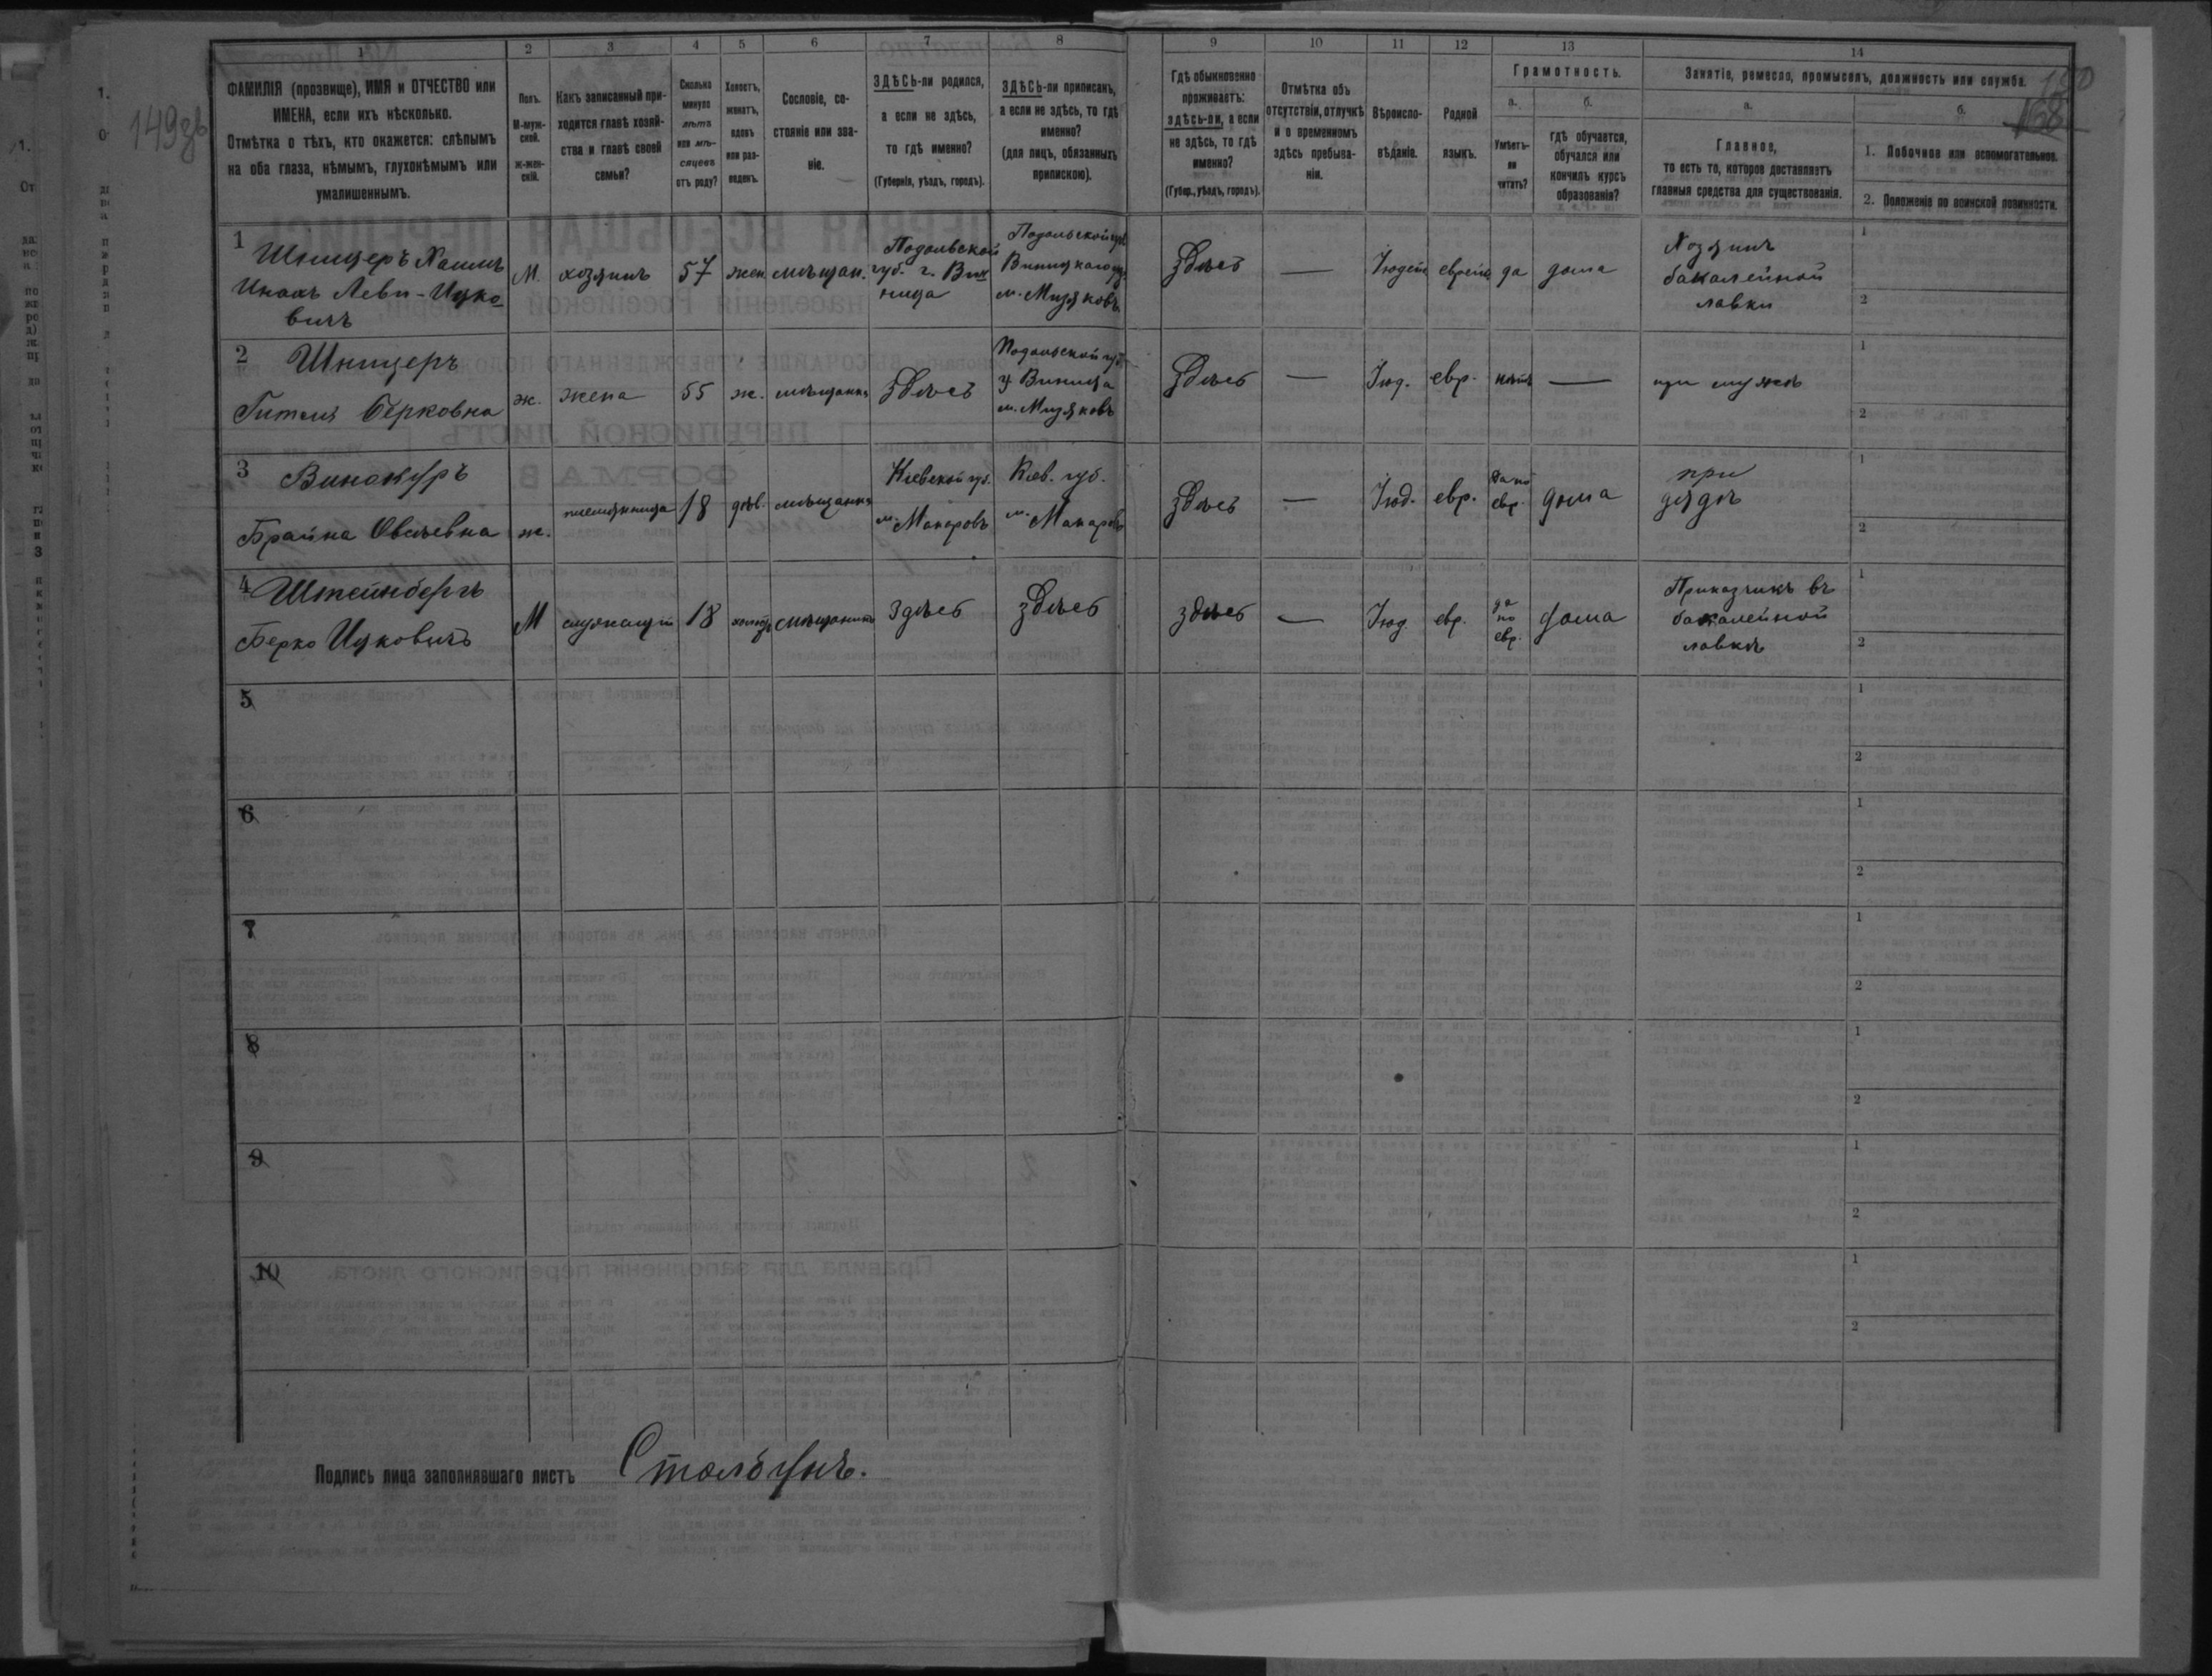 149зв
180
168
1 2 3 4 5 6 7 8 9 10 11 12 13 14
ФАМИЛІЯ (прозвище), ИМЯ и ОТЧЕСТВО или
ИМЕНА, если ихъ нѣсколько.
Отмѣтка о тѣхъ, кто окажется: слѣпымъ
на оба глаза, нѣмымъ, глухонѣмымъ или
умалишеннымъ.
Полъ.
М-муж-
ской.
Ж-жен-
скій.
Какъ записанный при-
ходится главѣ хозяй-
ства и главѣ своей
семьи?
Сколько
минуло
лѣтъ
или мѣ-
сяцевъ
отъ роду?
Холостъ,
женатъ,
вдовъ
или раз-
веденъ.
Сословіе, со-
стояніе или зва-
ніе.
ЗДѢСЬ-ли родился,
а если не здѣсь,
то гдѣ именно?
(Губернія, уѣздъ, городъ).
ЗДѢСЬ-ли приписанъ,
а если не здѣсь, то гдѣ
именно?
(для лицъ, обязанныхъ
припискою).
Гдѣ обыкновенно
проживаетъ:
здѣсь-ли, а если
не здѣсь, то гдѣ
именно?
(Губер., уѣздъ, городъ).
Отмѣтка объ
отсутствіи, отлучкѣ
и о временномъ
здѣсь пребыва-
ніи.
Вѣроиспо-
вѣданіе.
Родной
языкъ.
Грамотность.
а.
Умѣетъ-
ли
читать?
б.
гдѣ обучается,
обучался или
кончилъ курсъ
образованія?
Занятіе, ремесло, промыселъ, должность или служба.
а.
Главное,
то есть то, которое доставляетъ
главныя средства для существованія.
б.
1. Побочное или вспомогательное.
2. Положеніе по воинской повинности.
1
Шницеръ Хаимъ
Инохъ Леви-Ицко
вичъ
М.
хозяинъ
57
жен
мѣщан.
Подольской
губ. г. Вин
ница
Подольской губ
Винницкаго уѣз.
м. Мизяковъ
Здѣсь
—
Іюдей
еврейс
да
дома
Хозяинъ
бакалейной
лавки
1
2
2
Шницеръ
Гитля Берковна
ж.
жена
55
ж.
мѣщанка
Здѣсь
Подольской губ
у Винница
м. Мизяковъ
Здѣсь
—
Іюд.
евр.
нѣтъ
—
при мужѣ
1
2
3
Винокуръ
Брайна Овсѣевна
ж.
племянница
18
дѣв.
мѣщанка
Кіевской губ.
м. Макаровъ
Кіев. губ.
м. Макаровъ
Здѣсь
—
Іюд.
евр.
да по
евр.
дома
при
дядѣ
1
2
4
Штейнбергъ
Берко Ицковичъ
М
служащій
18
холост
мѣщанинъ
Здѣсь
здѣсь
здѣсь
—
Іюд.
евр.
да
по
евр.
дома
Приказчикъ въ
бакалейной
лавкѣ
1
2
5
1
2
6
1
2
7
1
2
8
1
2
9
1
2
10
1
2
Подпись лица заполнявшаго листъ Столбунъ.